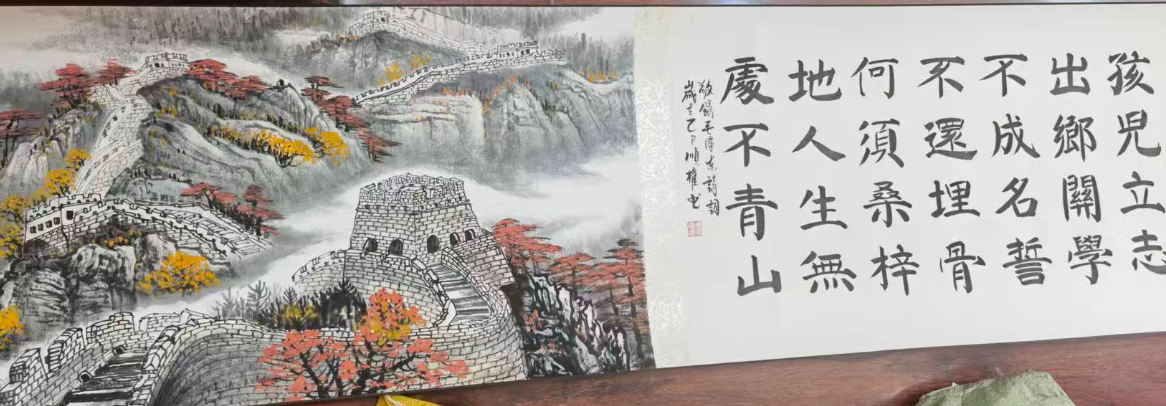 孩兒立志
出鄉關學
不成名誓
不還埋骨
何須桑梓
地人生無
處不青山
敬錄毛澤東詩詞
歲在乙巳順權書